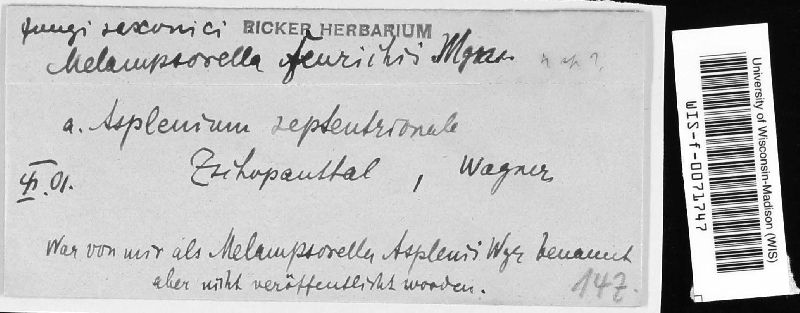 fungi saxonici RICKER HERBARIUM
Melampsorella feurichii Mgnus. n. sp?
a. Asplenium septentrionale
Zschopauthal, Wagner
VI. 01.
War von mir als Melampsorella Asplenii Wgr benannt
aber nicht veröffentlicht worden.
147.
University of Wisconsin-Madison (WIS)
WIS-f-0071747